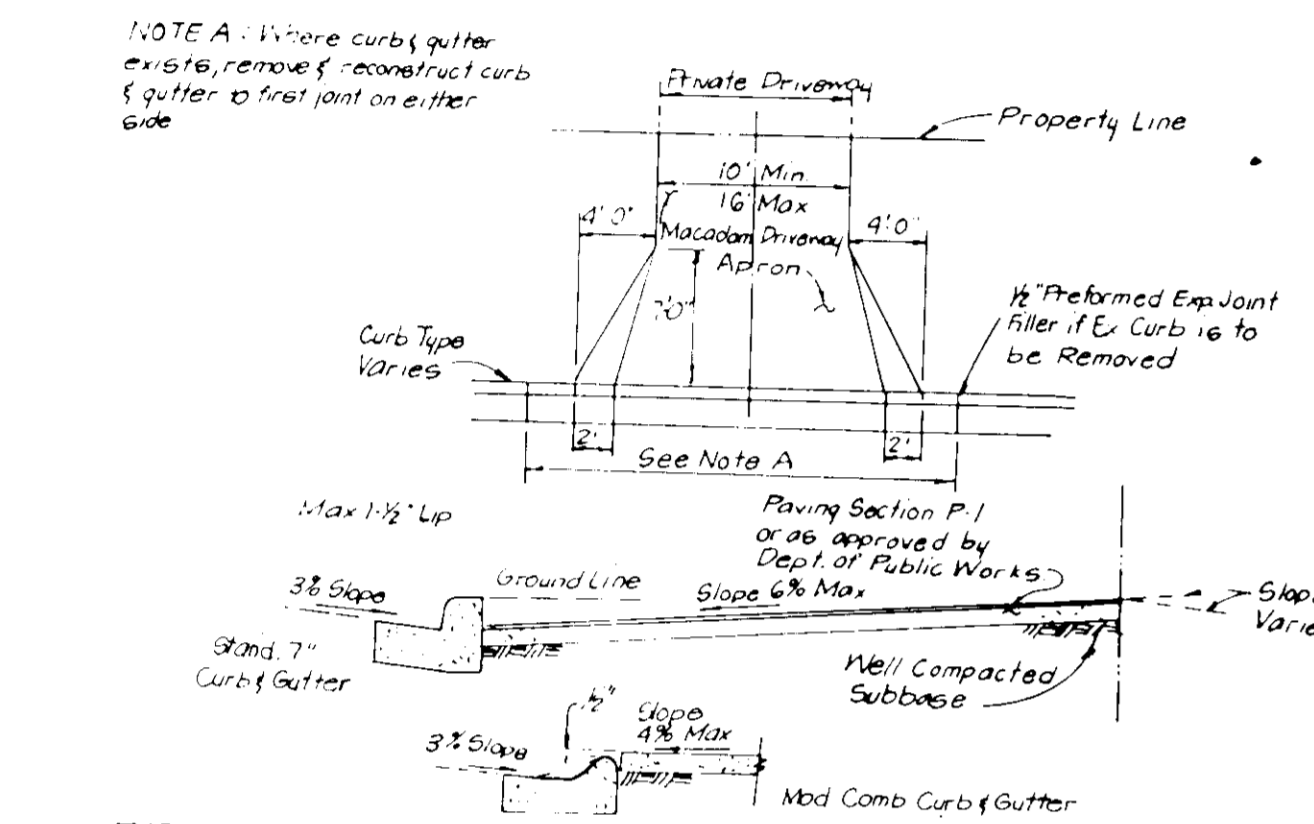 NOTE A : Where curb & gutter
exists, remove & reconstruct curb
& gutter to first joint on either
side
Private Driveway
Property Line
10' Min.
16' Max
4'-0"
4'-0"
Macadam Driveway
Apron
7'-0"
1/2" Preformed Exp Joint
Filler if Ex Curb is to
be Removed
Curb Type
Varies
2'
2'
See Note A
Max 1-1/2" Lip
Paving Section P-1
or as approved by
Dept. of Public Works
3% Slope
Ground Line
Slope 6% Max
Stand. 7"
Curb & Gutter
Well Compacted
Subbase
3% Slope
Slope
4% Max
Mod Comb Curb & Gutter